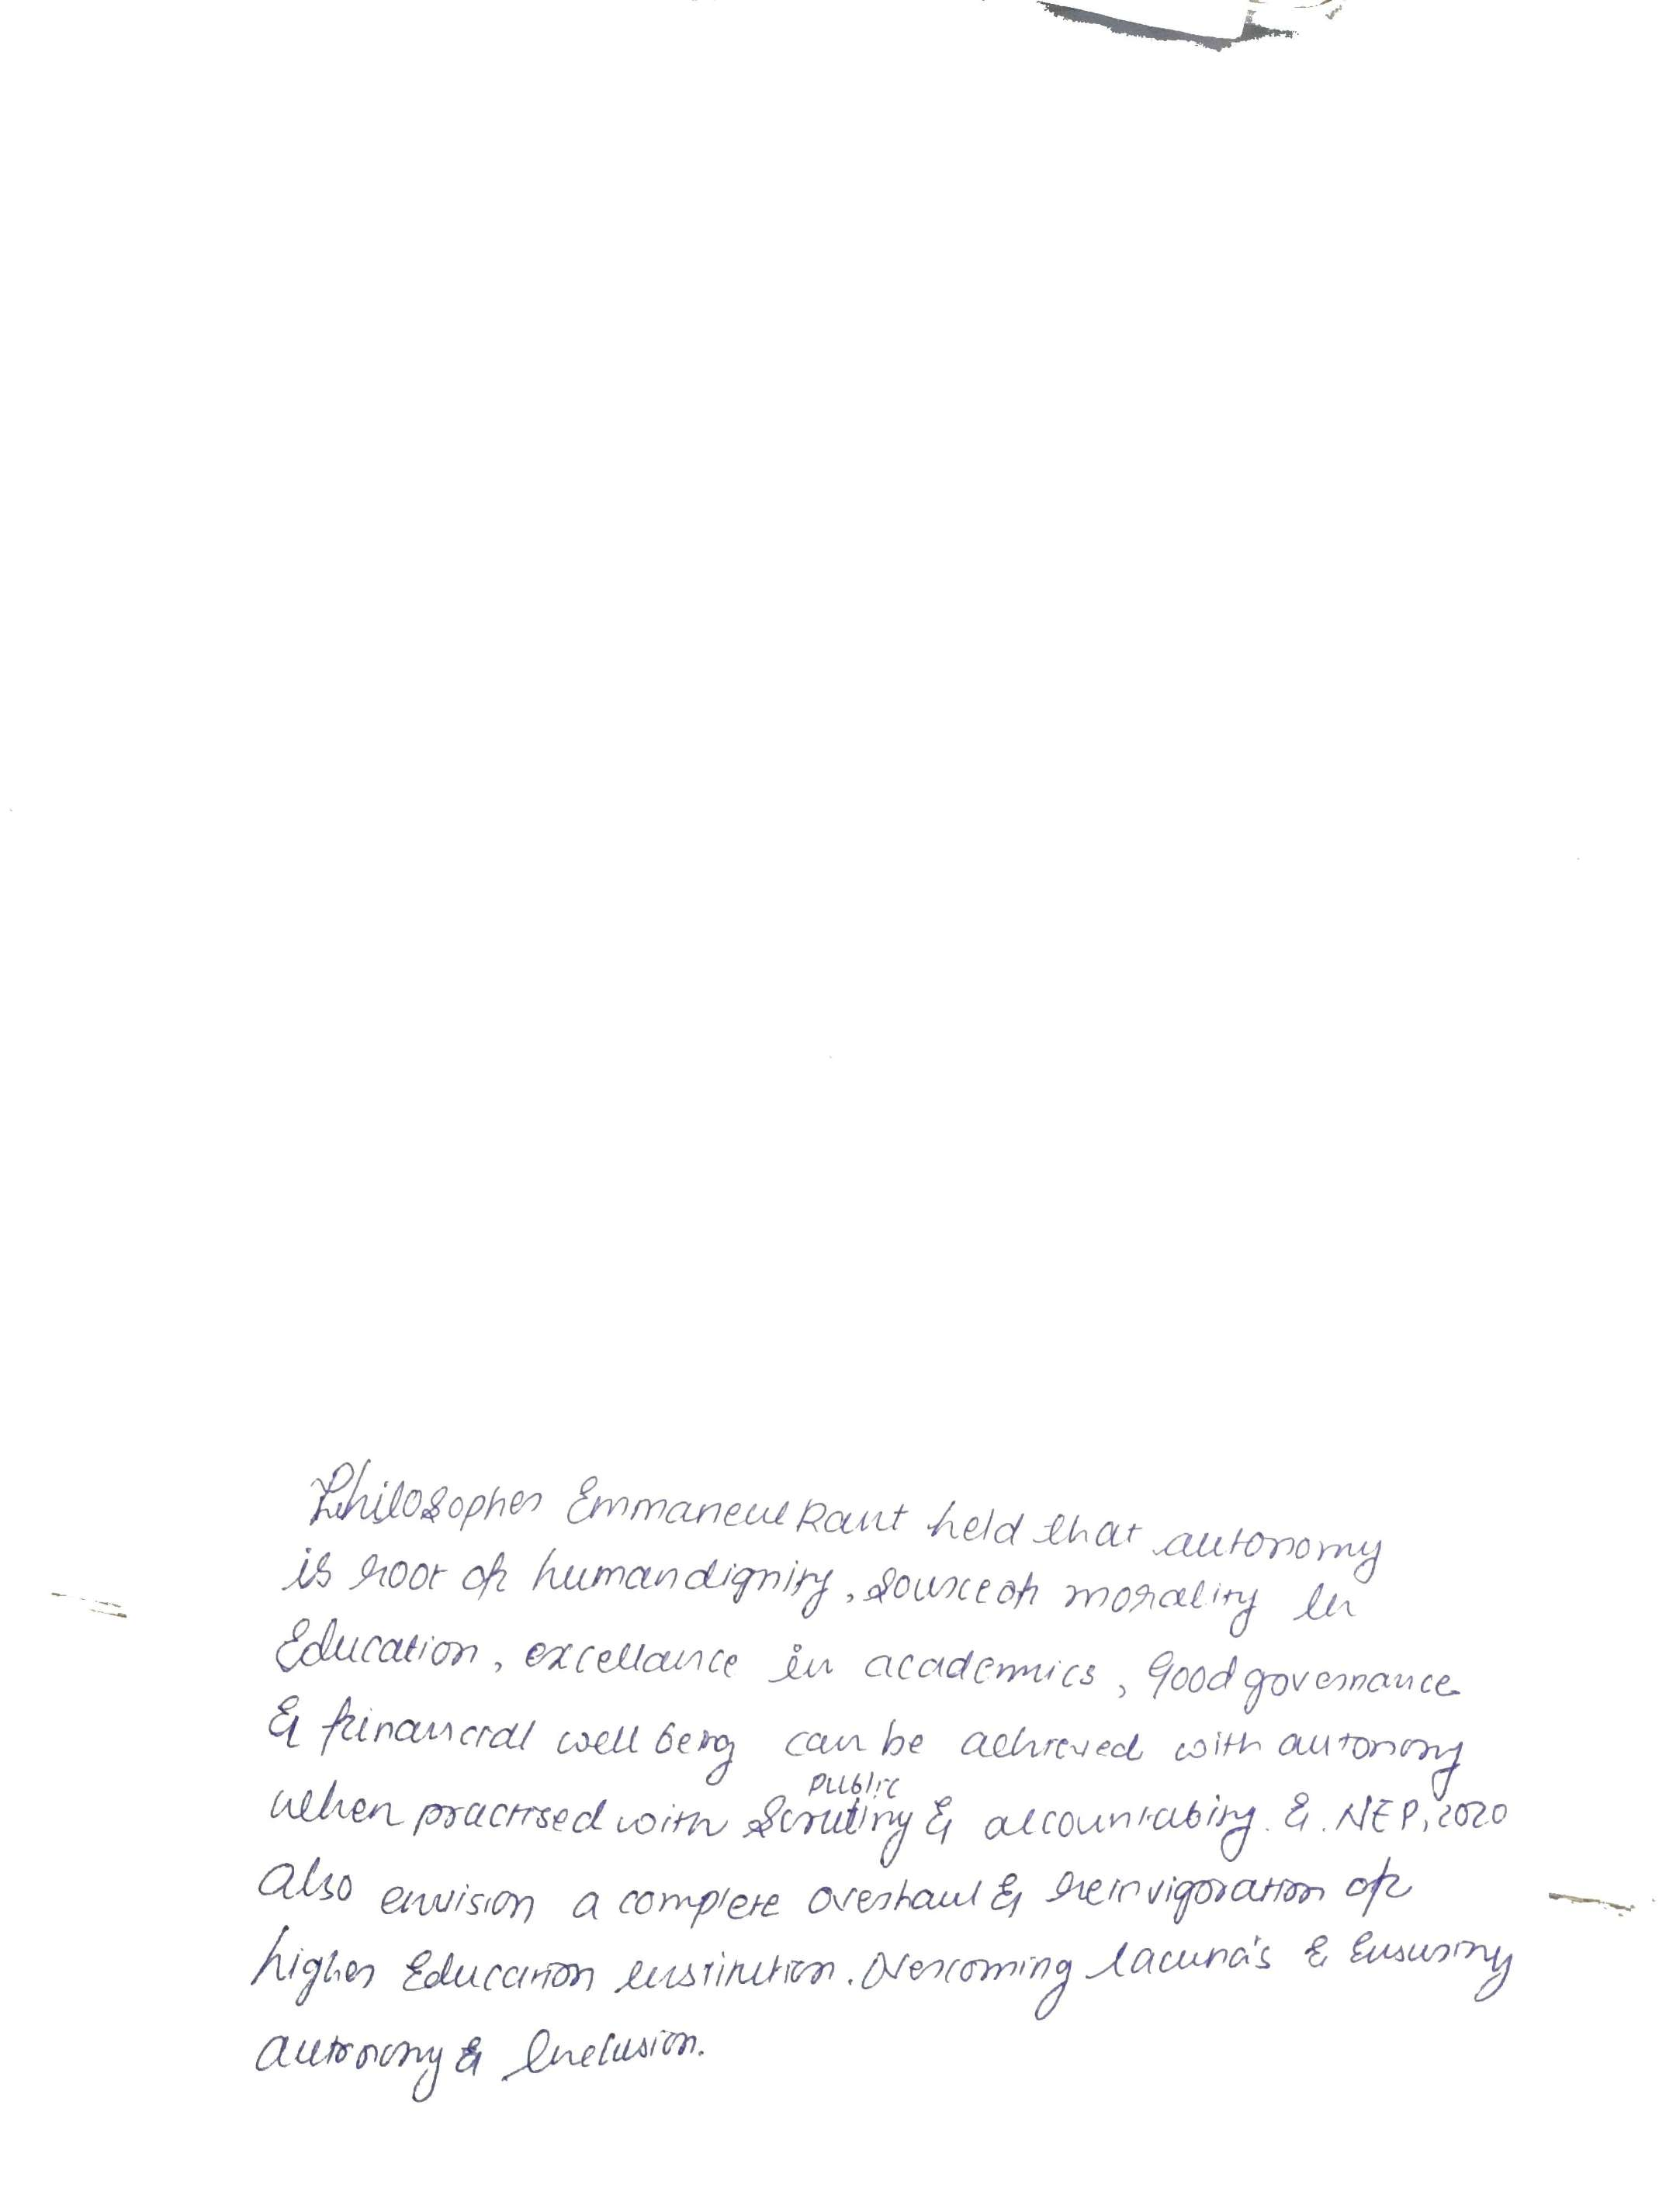 Philosopher Emmaneul Kant held that autonomy
is root of human dignity, source of morality In
Education, excellance in academics, Good governance
& financial well being can be achieved with autonomy
public
when practised with Scrutiny & accountabity. &. NEP, 2020
Also envision a complete overhaul & reinvigoration of
higher Education institution. Overcoming lacuna's & Ensuring
autonomy & Inclusion.